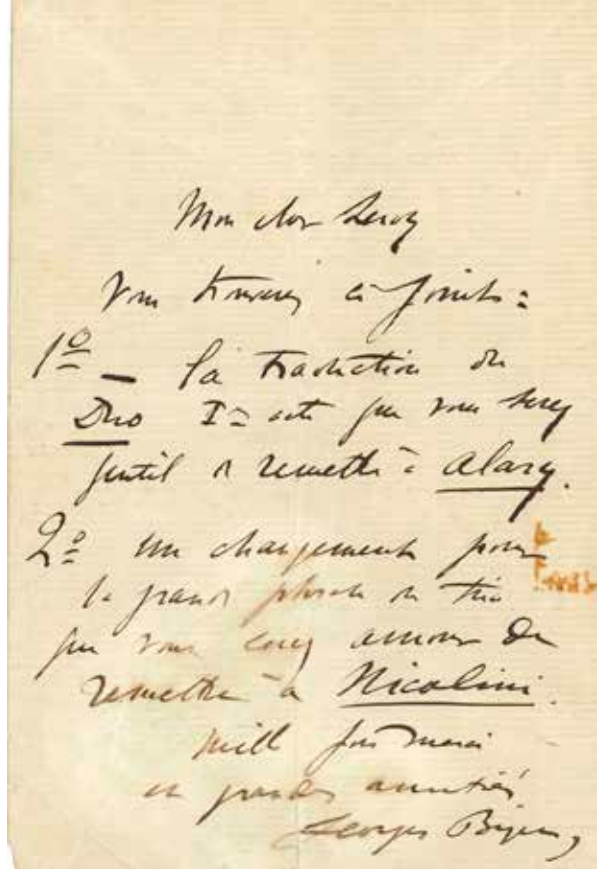 Mon cher Leroy
Vous trouverez ci joints:
1º — la traduction du
Duo Iº acte que vous serez
gentil de remettre à Alary.
2º un changement pour
la grande phrase du trio
que vous serez amour de
remettre à Nicolini.
mille fois merci
et grandes amitiés
Georges Bizet